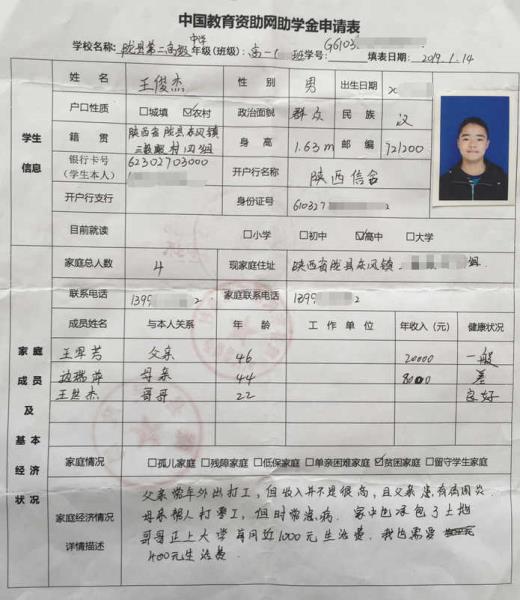 中国教育资助网助学金申请表
学校名称: 陇县第二高级中学 年级(班级): 高一 班 学号: G6103 填表日期: 2019.1.14
姓名 王俊杰 性别 男 出生日期
户口性质 □城填 ☑农村 政治面貌 群众 民族 汉
学生信息
籍贯 陕西省陇县东风镇 村四组 身高 1.63m 邮编 721200
银行卡号(学生本人) 62302703000 开户行名称 陕西信合
开户行支行 身份证号 610327 2
目前就读 □小学 □初中 ☑高中 □大学
家庭总人数 4 现家庭住址 陕西省陇县东风镇 组
联系电话 1399 2 家庭联系电话 1399 2
成员姓名 与本人关系 年龄 工作单位 年收入(元) 健康状况
王军芳 父亲 46 20000 一般
边瑞萍 母亲 44 8000 差
王 杰 哥哥 22 良好
家庭成员及基本经济状况
家庭情况 □孤儿家庭 □残障家庭 □低保家庭 □单亲困难家庭 ☑贫困家庭 □留守学生家庭
家庭经济情况详情描述
父亲常年外出打工,但收入并不是很高,且父亲患有肩周炎
母亲帮人打零工,但时常患病。家中也承包了土地
哥哥正上大学每月近1000元生活费,我也需要
400元生活费